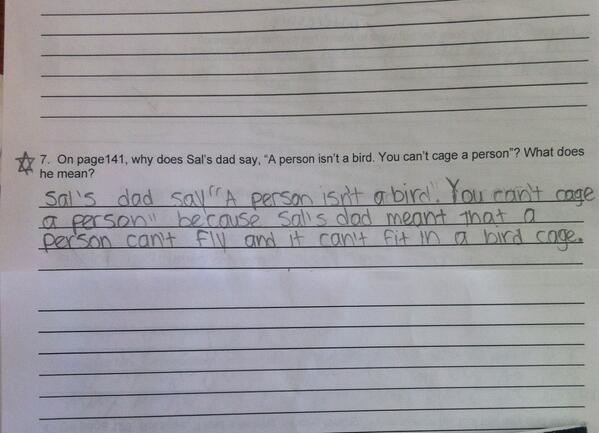 7. On page141, why does Sal's dad say, "A person isn't a bird. You can't cage a person"? What does
he mean?
Sal's dad say "A person isn't a bird". You can't cage
a person" because Sal's dad meant that a
person can't fly and it can't fit in a bird cage.